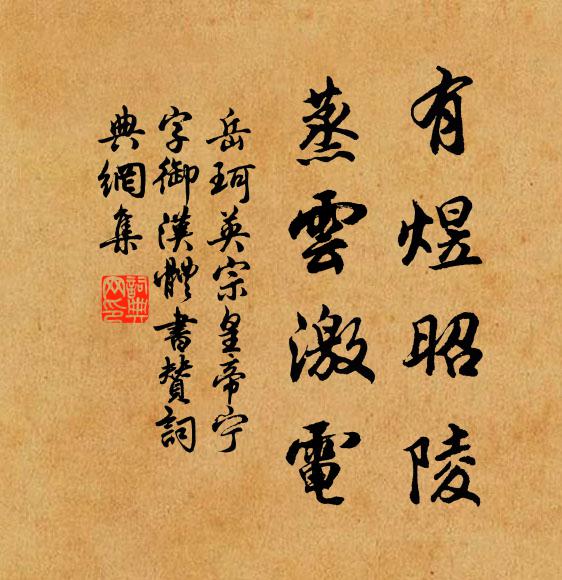 有煜昭陵
蒸雲激電
岳珂英宗皇帝宁
字御漢體書賛詞
典網集
詞典网印